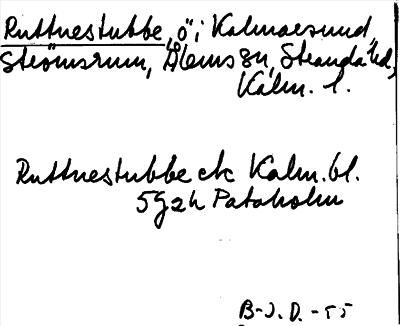 Ruttnestubbe, ö i Kalmarsund,
Strömsrum, Ålems sn, Stranda hd,
Kalm. l.
Ruttnestubbe ek Kalm. bl.
5g2h Pataholm
B-J.D. -55